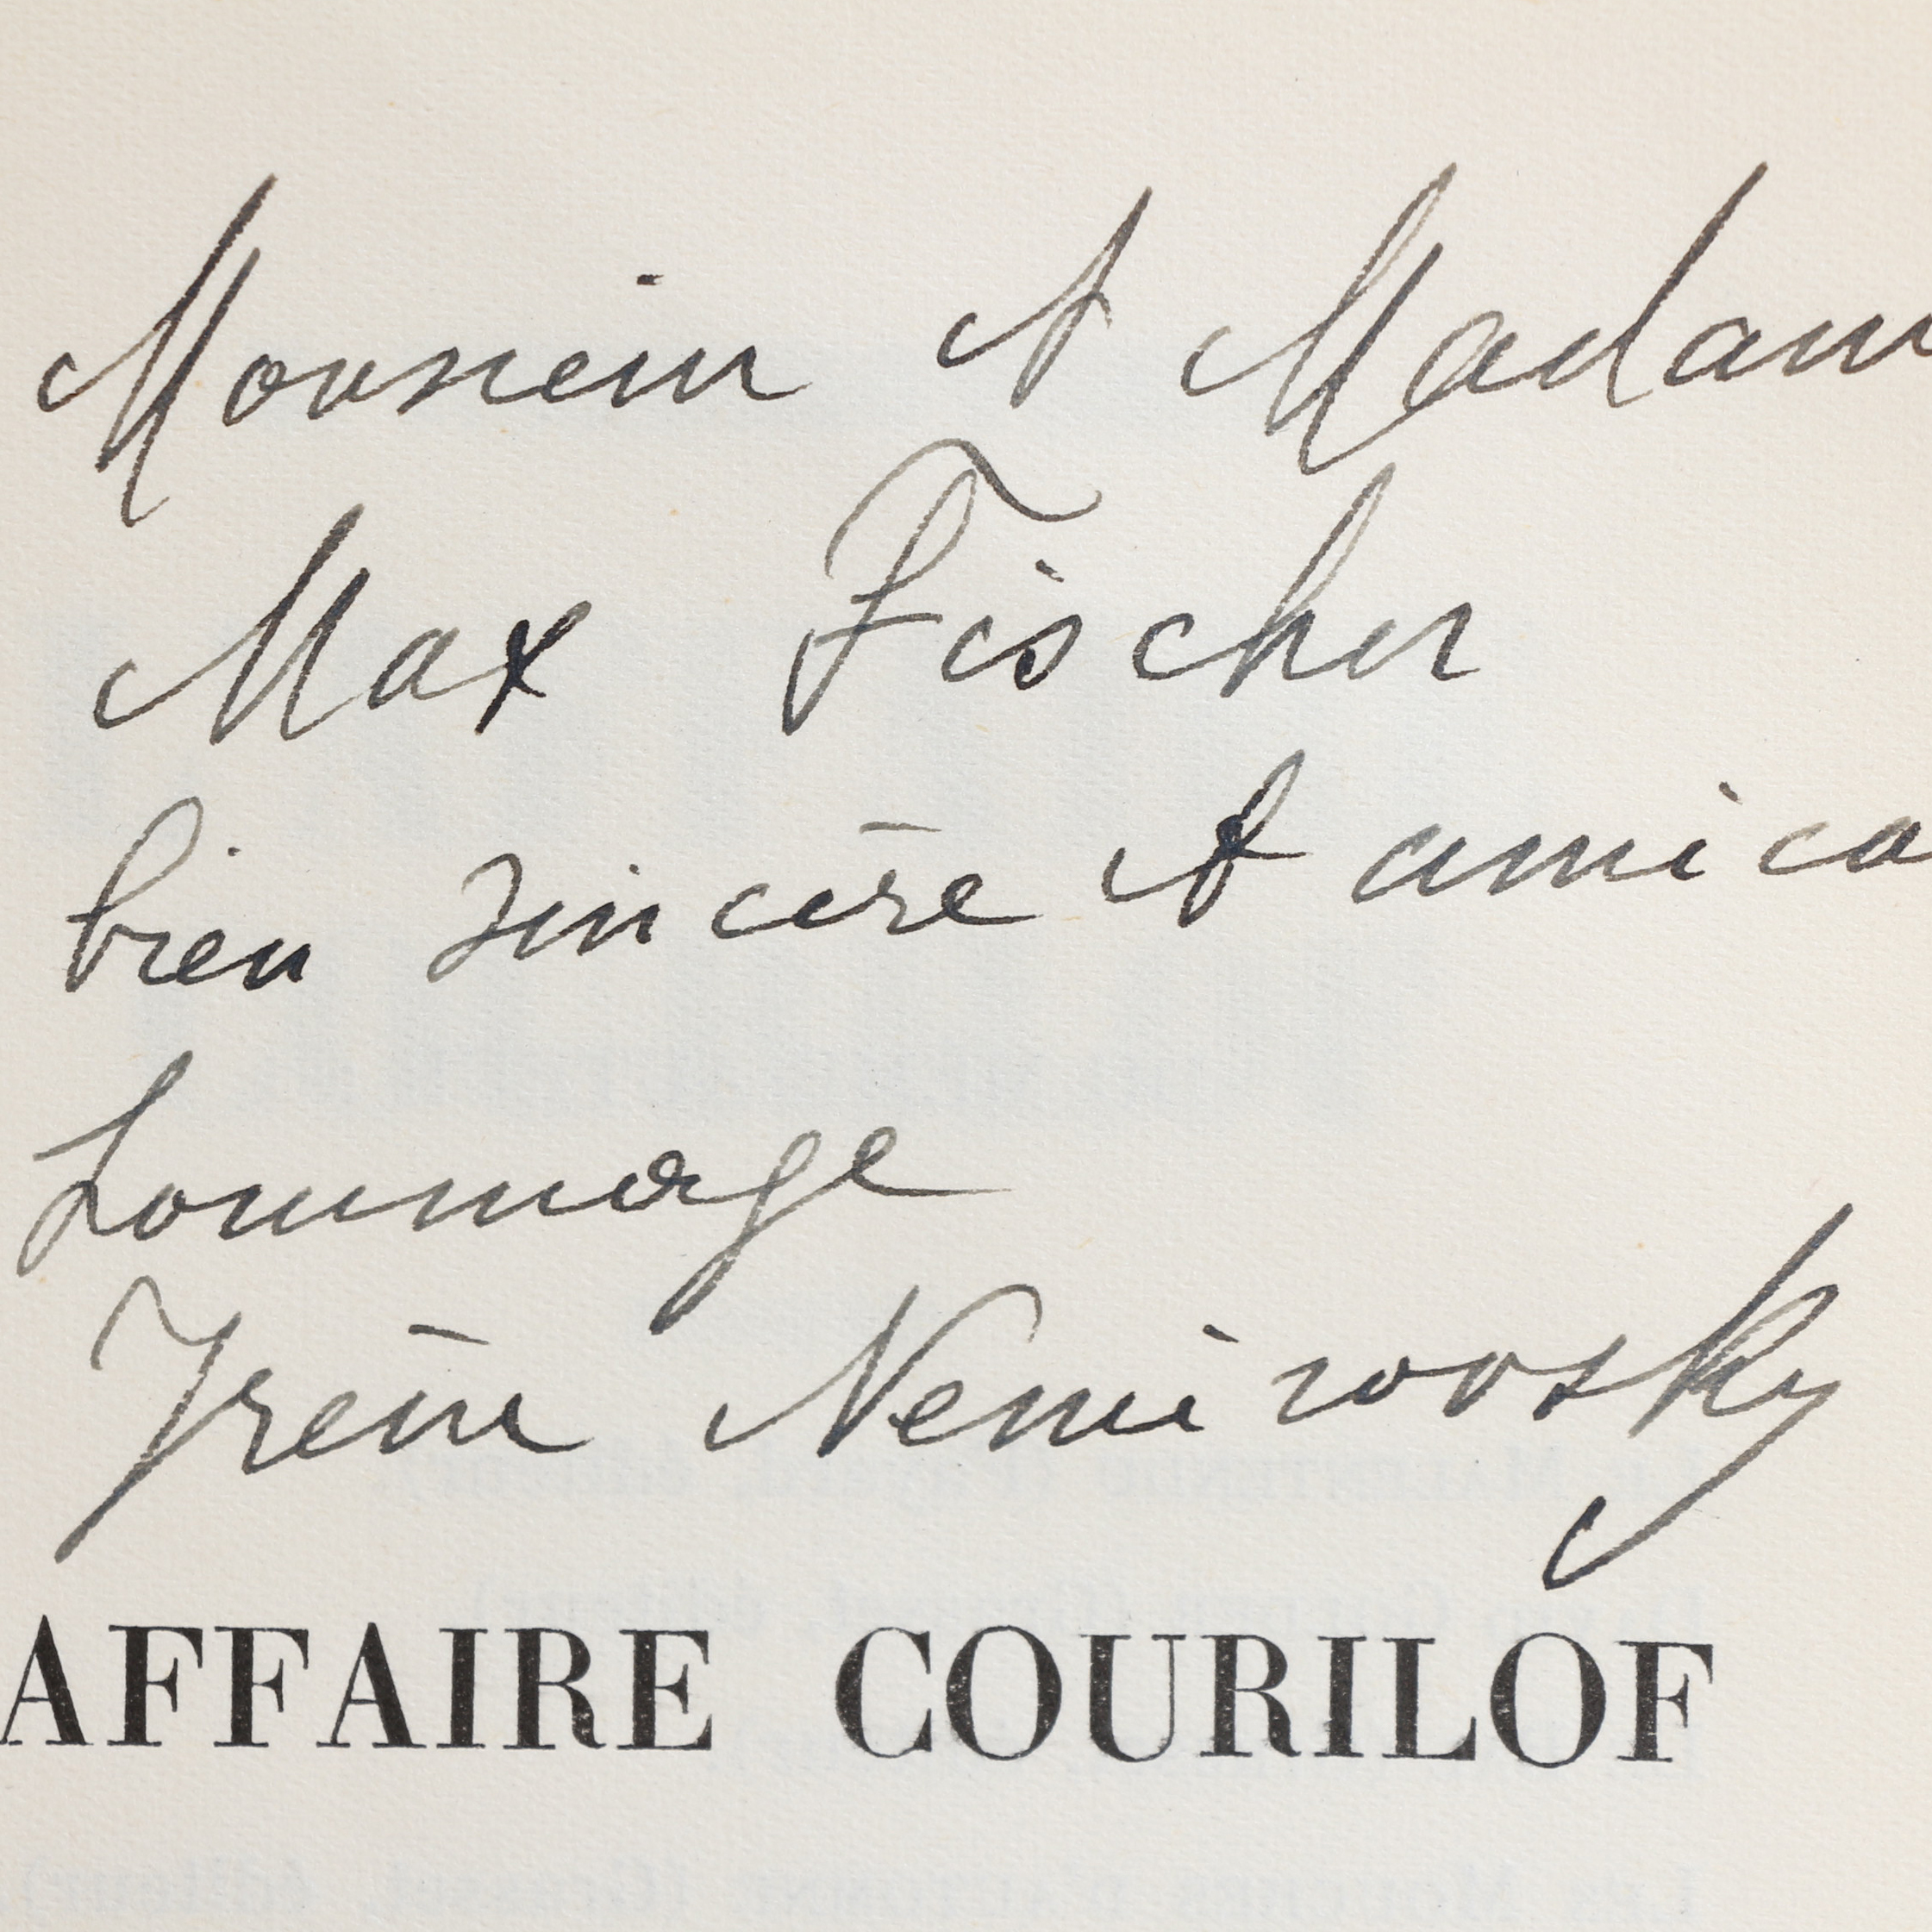 Monsieur et Madam
Max Fischer
bien sincère et amica
hommage
Irène Nemirovsky
AFFAIRE COURILOF